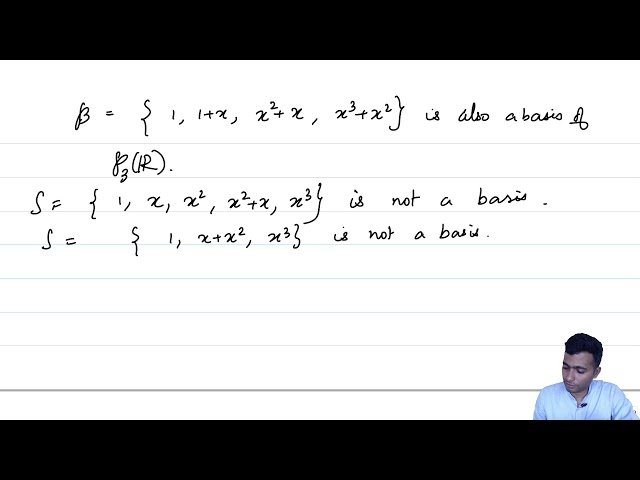 β = { 1, 1+x, x²+x, x³+x²} is also a basis of
P₃(ℝ).
S = { 1, x, x², x²+x, x³} is not a basis.
S = { 1, x+x², x³} is not a basis.